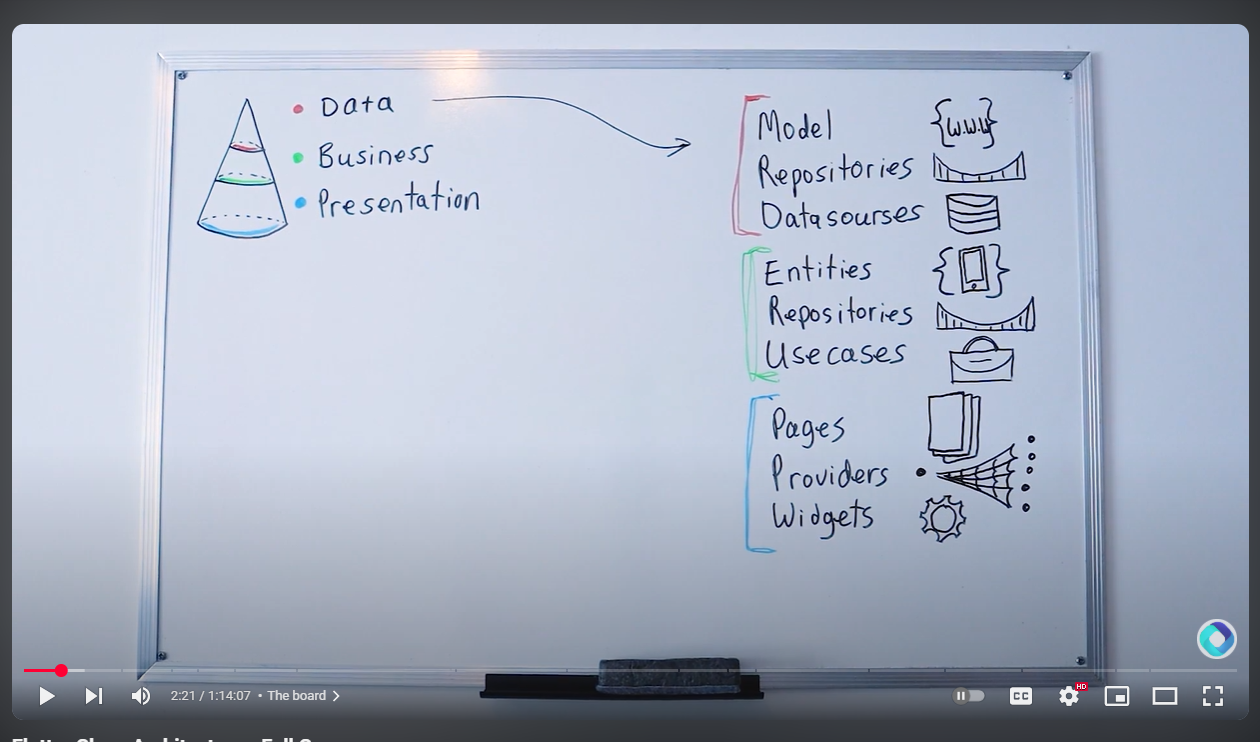 Data
Business
Presentation
Model
{w.w.w}
Repositories
Datasourses
Entities
Repositories
Usecases
Pages
Providers
Widgets
2:21 / 1:14:07 • The board
CC
HD